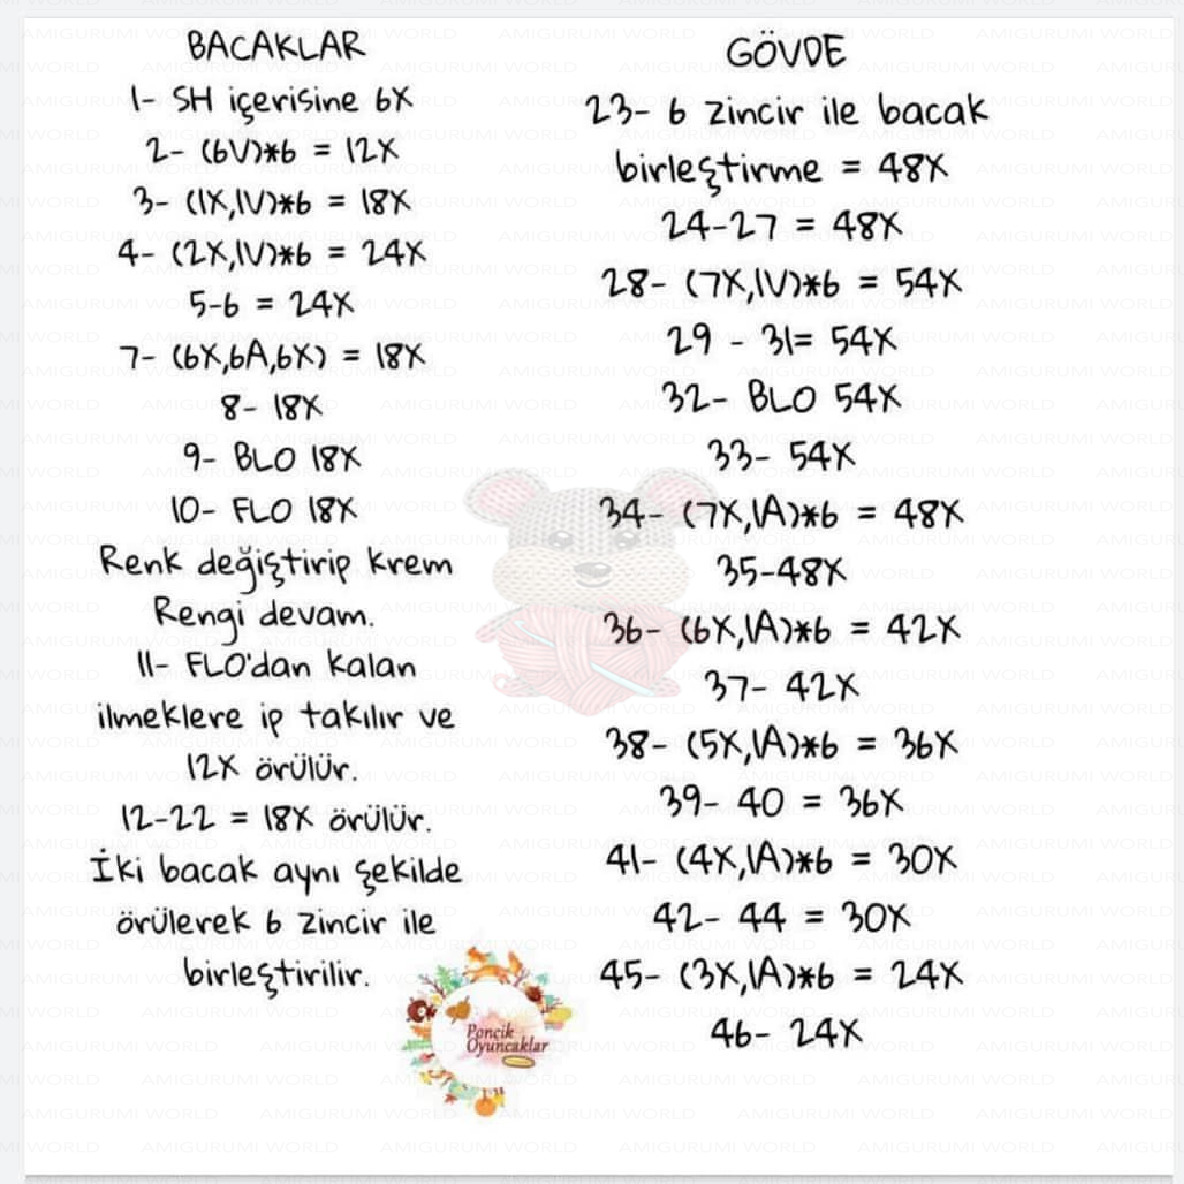 BACAKLAR
1- SH içerisine 6X
2- (6V)*6 = 12X
3- (1X,1V)*6 = 18X
4- (2X,1V)*6 = 24X
5-6 = 24X
7- (6X,6A,6X) = 18X
8- 18X
9- BLO 18X
10- FLO 18X
Renk değiştirip krem
Rengi devam.
11- FLO'dan kalan
ilmeklere ip takılır ve
12X örülür.
12-22 = 18X örülür.
İki bacak aynı şekilde
örülerek 6 zincir ile
birleştirilir.
GÖVDE
23- 6 zincir ile bacak
birleştirme = 48X
24-27 = 48X
28- (7X,1V)*6 = 54X
29 - 31= 54X
32- BLO 54X
33- 54X
34- (7X,1A)*6 = 48X
35-48X
36- (6X,1A)*6 = 42X
37- 42X
38- (5X,1A)*6 = 36X
39- 40 = 36X
41- (4X,1A)*6 = 30X
42- 44 = 30X
45- (3X,1A)*6 = 24X
46- 24X
Ponçik
Oyuncaklar
AMIGURUMI WORLD